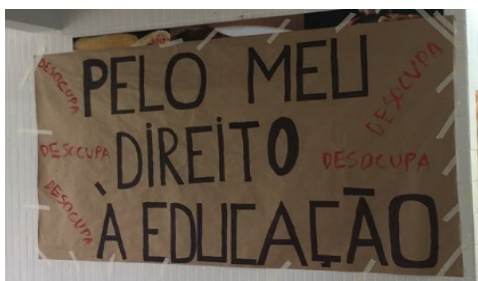 PELO MEU
DIREITO
À EDUCAÇÃO
DESOCUPA
DESOCUPA
DESOCUPA
DESOCUPA
DESOCUPA